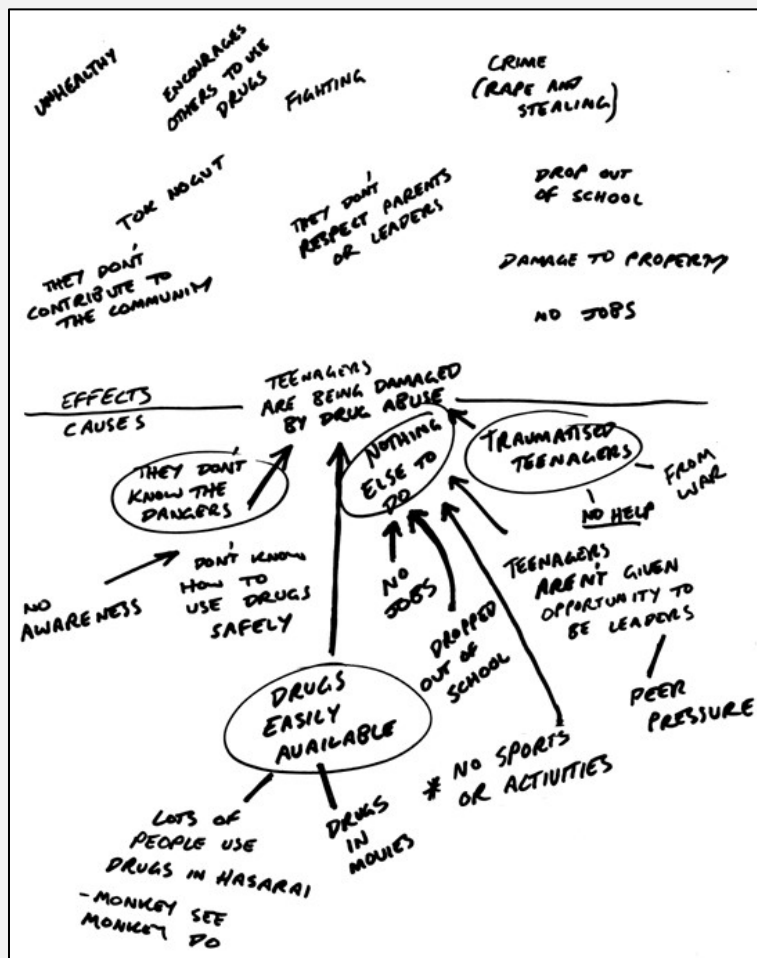 UNHEALTHY
ENCOURAGES
OTHERS TO USE
DRUGS
FIGHTING
CRIME
(RAPE AND
STEALING)
TOK NOGUT
THEY DON'T
RESPECT PARENTS
OR LEADERS
DROP OUT
OF SCHOOL
THEY DON'T
CONTRIBUTE TO
THE COMMUNITY
DAMAGE TO PROPERTY
NO JOBS
EFFECTS
CAUSES
TEENAGERS
ARE BEING DAMAGED
BY DRUG ABUSE
THEY DON'T
KNOW THE
DANGERS
NOTHING
ELSE TO
DO
TRAUMATISED
TEENAGERS
FROM
WAR
NO HELP
NO
AWARENESS
DON'T KNOW
HOW TO
USE DRUGS
SAFELY
NO
JOBS
DROPPED
OUT OF
SCHOOL
TEENAGERS
AREN'T GIVEN
OPPORTUNITY TO
BE LEADERS
PEER
PRESSURE
DRUGS
EASILY
AVAILABLE
* NO SPORTS
OR ACTIVITIES
LOTS OF
PEOPLE USE
DRUGS IN HASARAI
- MONKEY SEE
MONKEY DO
DRUGS
IN
MOVIES